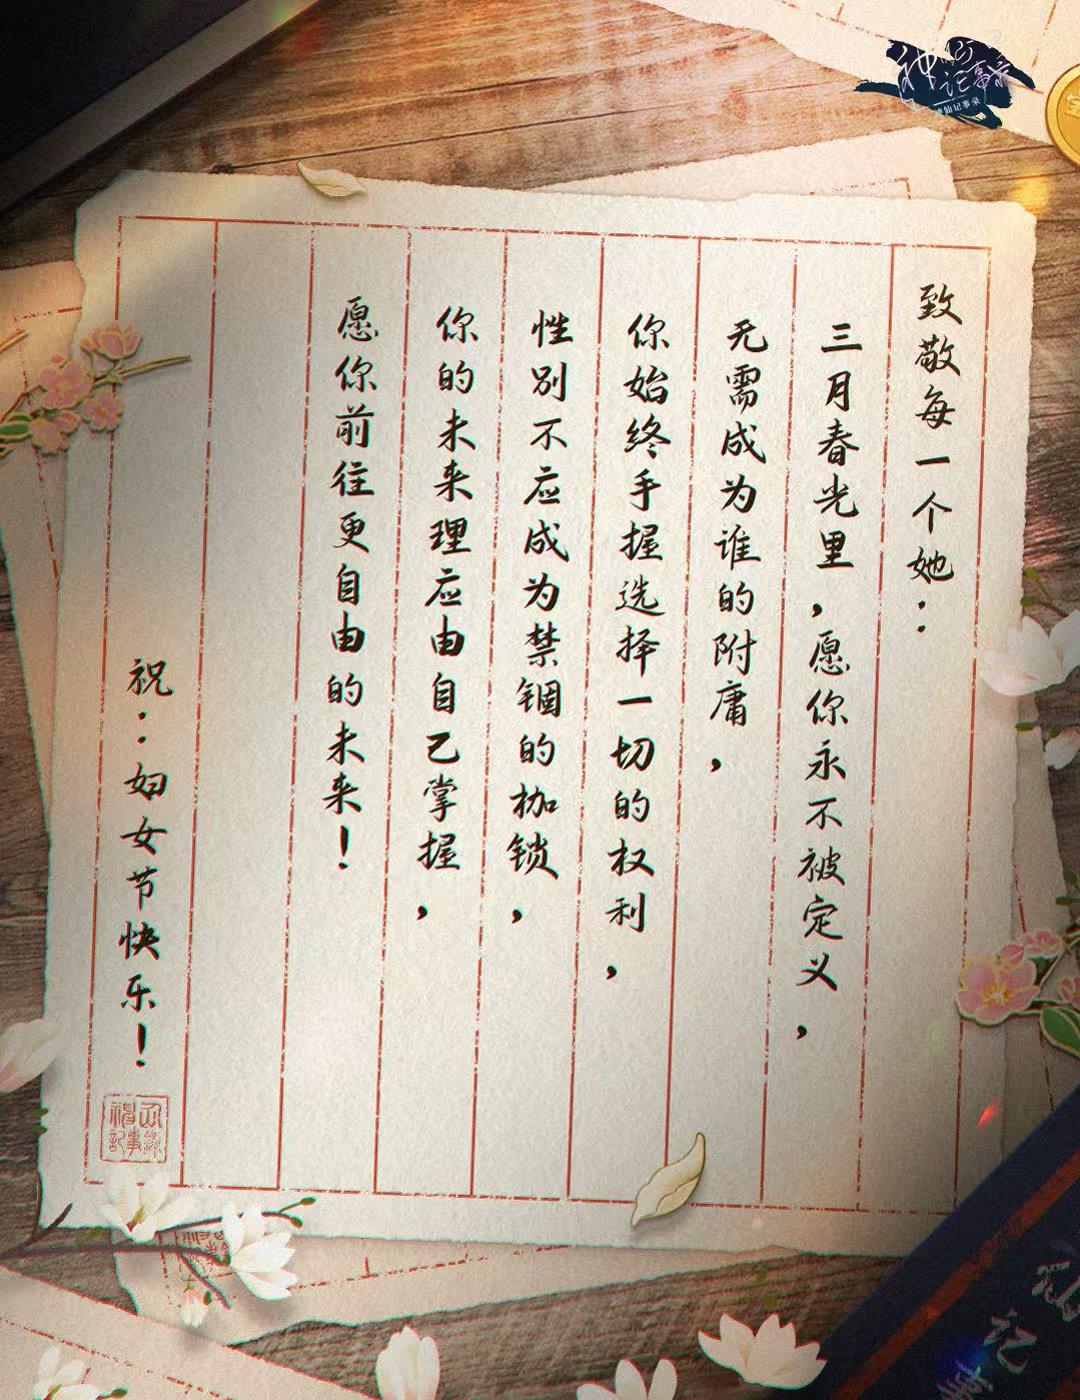 致敬每一个她：
三月春光里，愿你永不被定义，
无需成为谁的附庸，
你始终手握选择一切的权利，
性别不应成为禁锢的枷锁，
你的未来理应由自己掌握，
愿你前往更自由的未来！
祝：妇女节快乐！
记事录
仙记事录
记